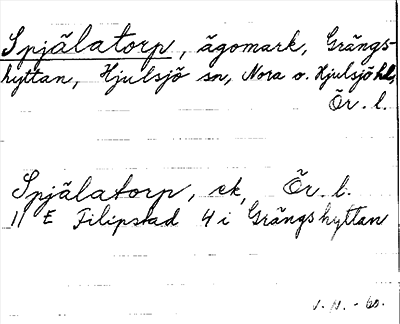 Spjälatorp, ägomark, Grängs-
hyttan, Hjulsjö sn, Nora o. Hjulsjö hd,
Ör. l.
Spjälatorp, ek, Ör. l.
11 E Filipstad 4 i Grängshyttan